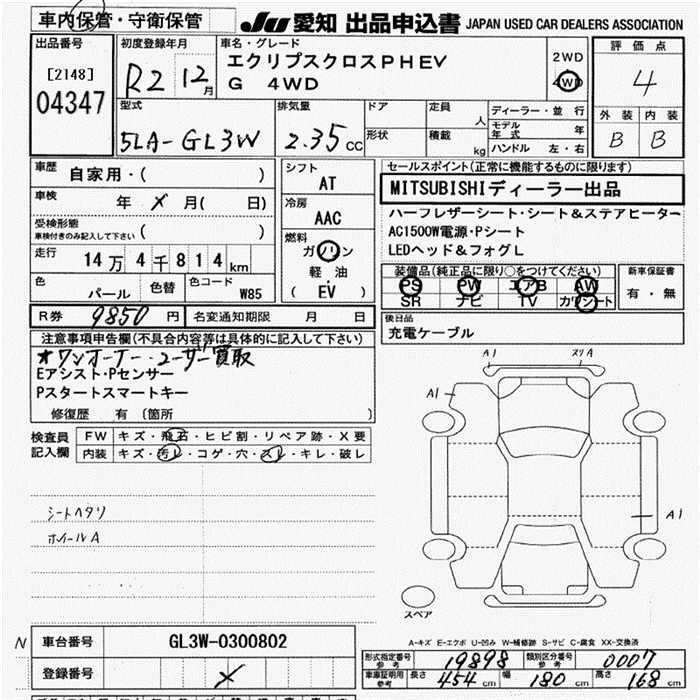 車内保管・守衛保管
JU 愛知 出品申込書 JAPAN USED CAR DEALERS ASSOCIATION
出品番号
[2148]
04347
初度登録年月
R2 12月
車名・グレード
エクリプスクロスPHEV
G 4WD
2WD
4WD
評価点
4
外装 内装
B B
型式
5LA-GL3W
排気量
2.35 CC
ドア
形状
定員 人
積載 kg
ディーラー・並行
モデル年式 年
ハンドル 左・右
車歴 自家用・( )
車検 年 月( 日)
受検形態
車検付きのみ記入して下さい ( )
走行 14万4千814km
色 パール
色替
色コード W85
シフト
AT
冷房
AAC
燃料
ガソリン
軽油
( EV )
セールスポイント(正常に機能するものに限ります)
MITSUBISHIディーラー出品
ハーフレザーシート・シート&ステアヒーター
AC1500W電源・Pシート
LEDヘッド&フォグL
装備品(純正品に限り○をつけてください)
PS PW エアB AW
SR ナビ TV カワシート
新車保証書
有・無
R券 9850円
名変通知期限 月 日
後日品
充電ケーブル
注意事項申告欄(不具合内容等は具体的に記入して下さい)
★ワンオーナー・ユーザー買取
Eアシスト・Pセンサー
Pスタートスマートキー
修復歴 有(箇所 )
検査員記入欄
FW キズ・飛石・ヒビ割・リペア跡・X要
内装 キズ・汚レ・コゲ・穴・スレ・キレ・破レ
シートヘタリ
ホイールA
A1 スリA
A1
A1
スペア
A-キズ E-エクボ U-凹み W-補修跡 S-サビ C-腐食 XX-交換済
N
車台番号 GL3W-0300802
登録番号
型式指定番号 参考 19898
類別区分番号 参考 0007
車庫証明用 参考 長さ 454cm 幅 180cm 高さ 168cm